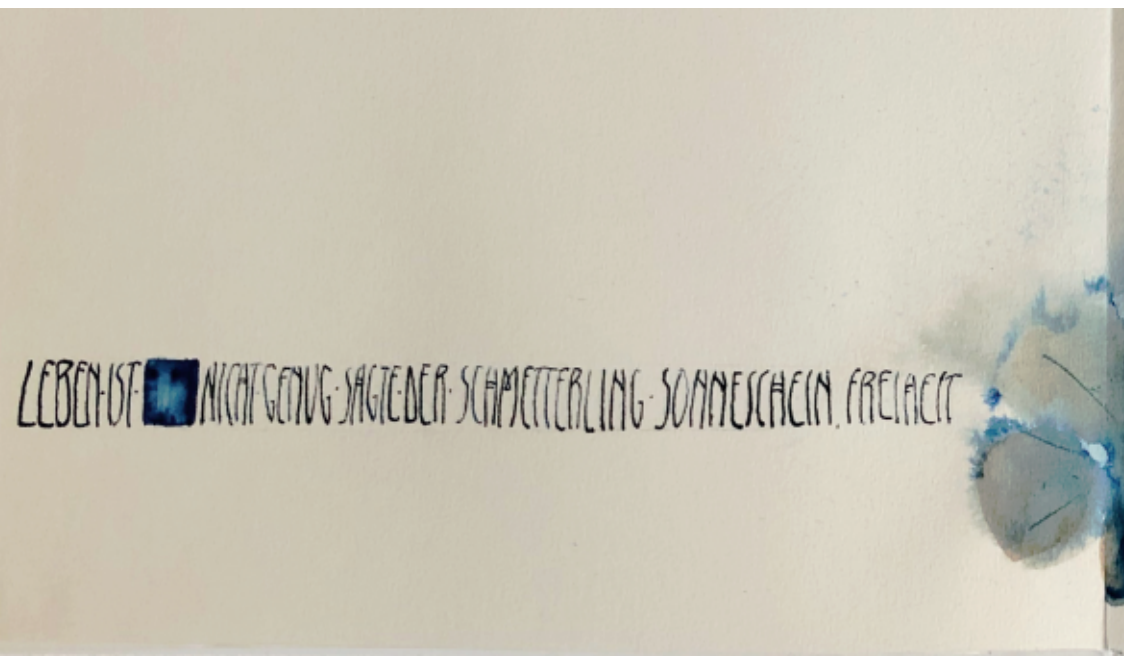 LEBEN·IST· NICHT·GENUG·SAGTE·DER·SCHMETTERLING·SONNESCHEIN, FREIHEIT